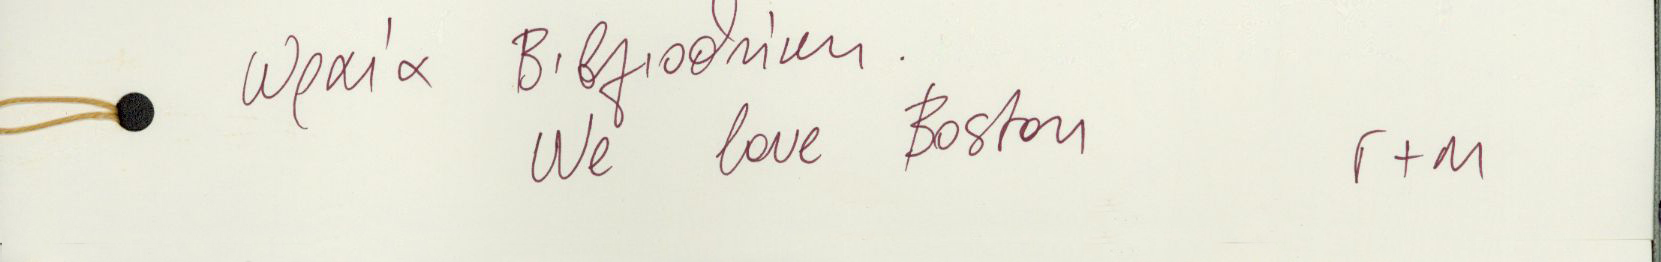 ωραία Βιβλιοθήκη.
We love Boston Γ+Μ